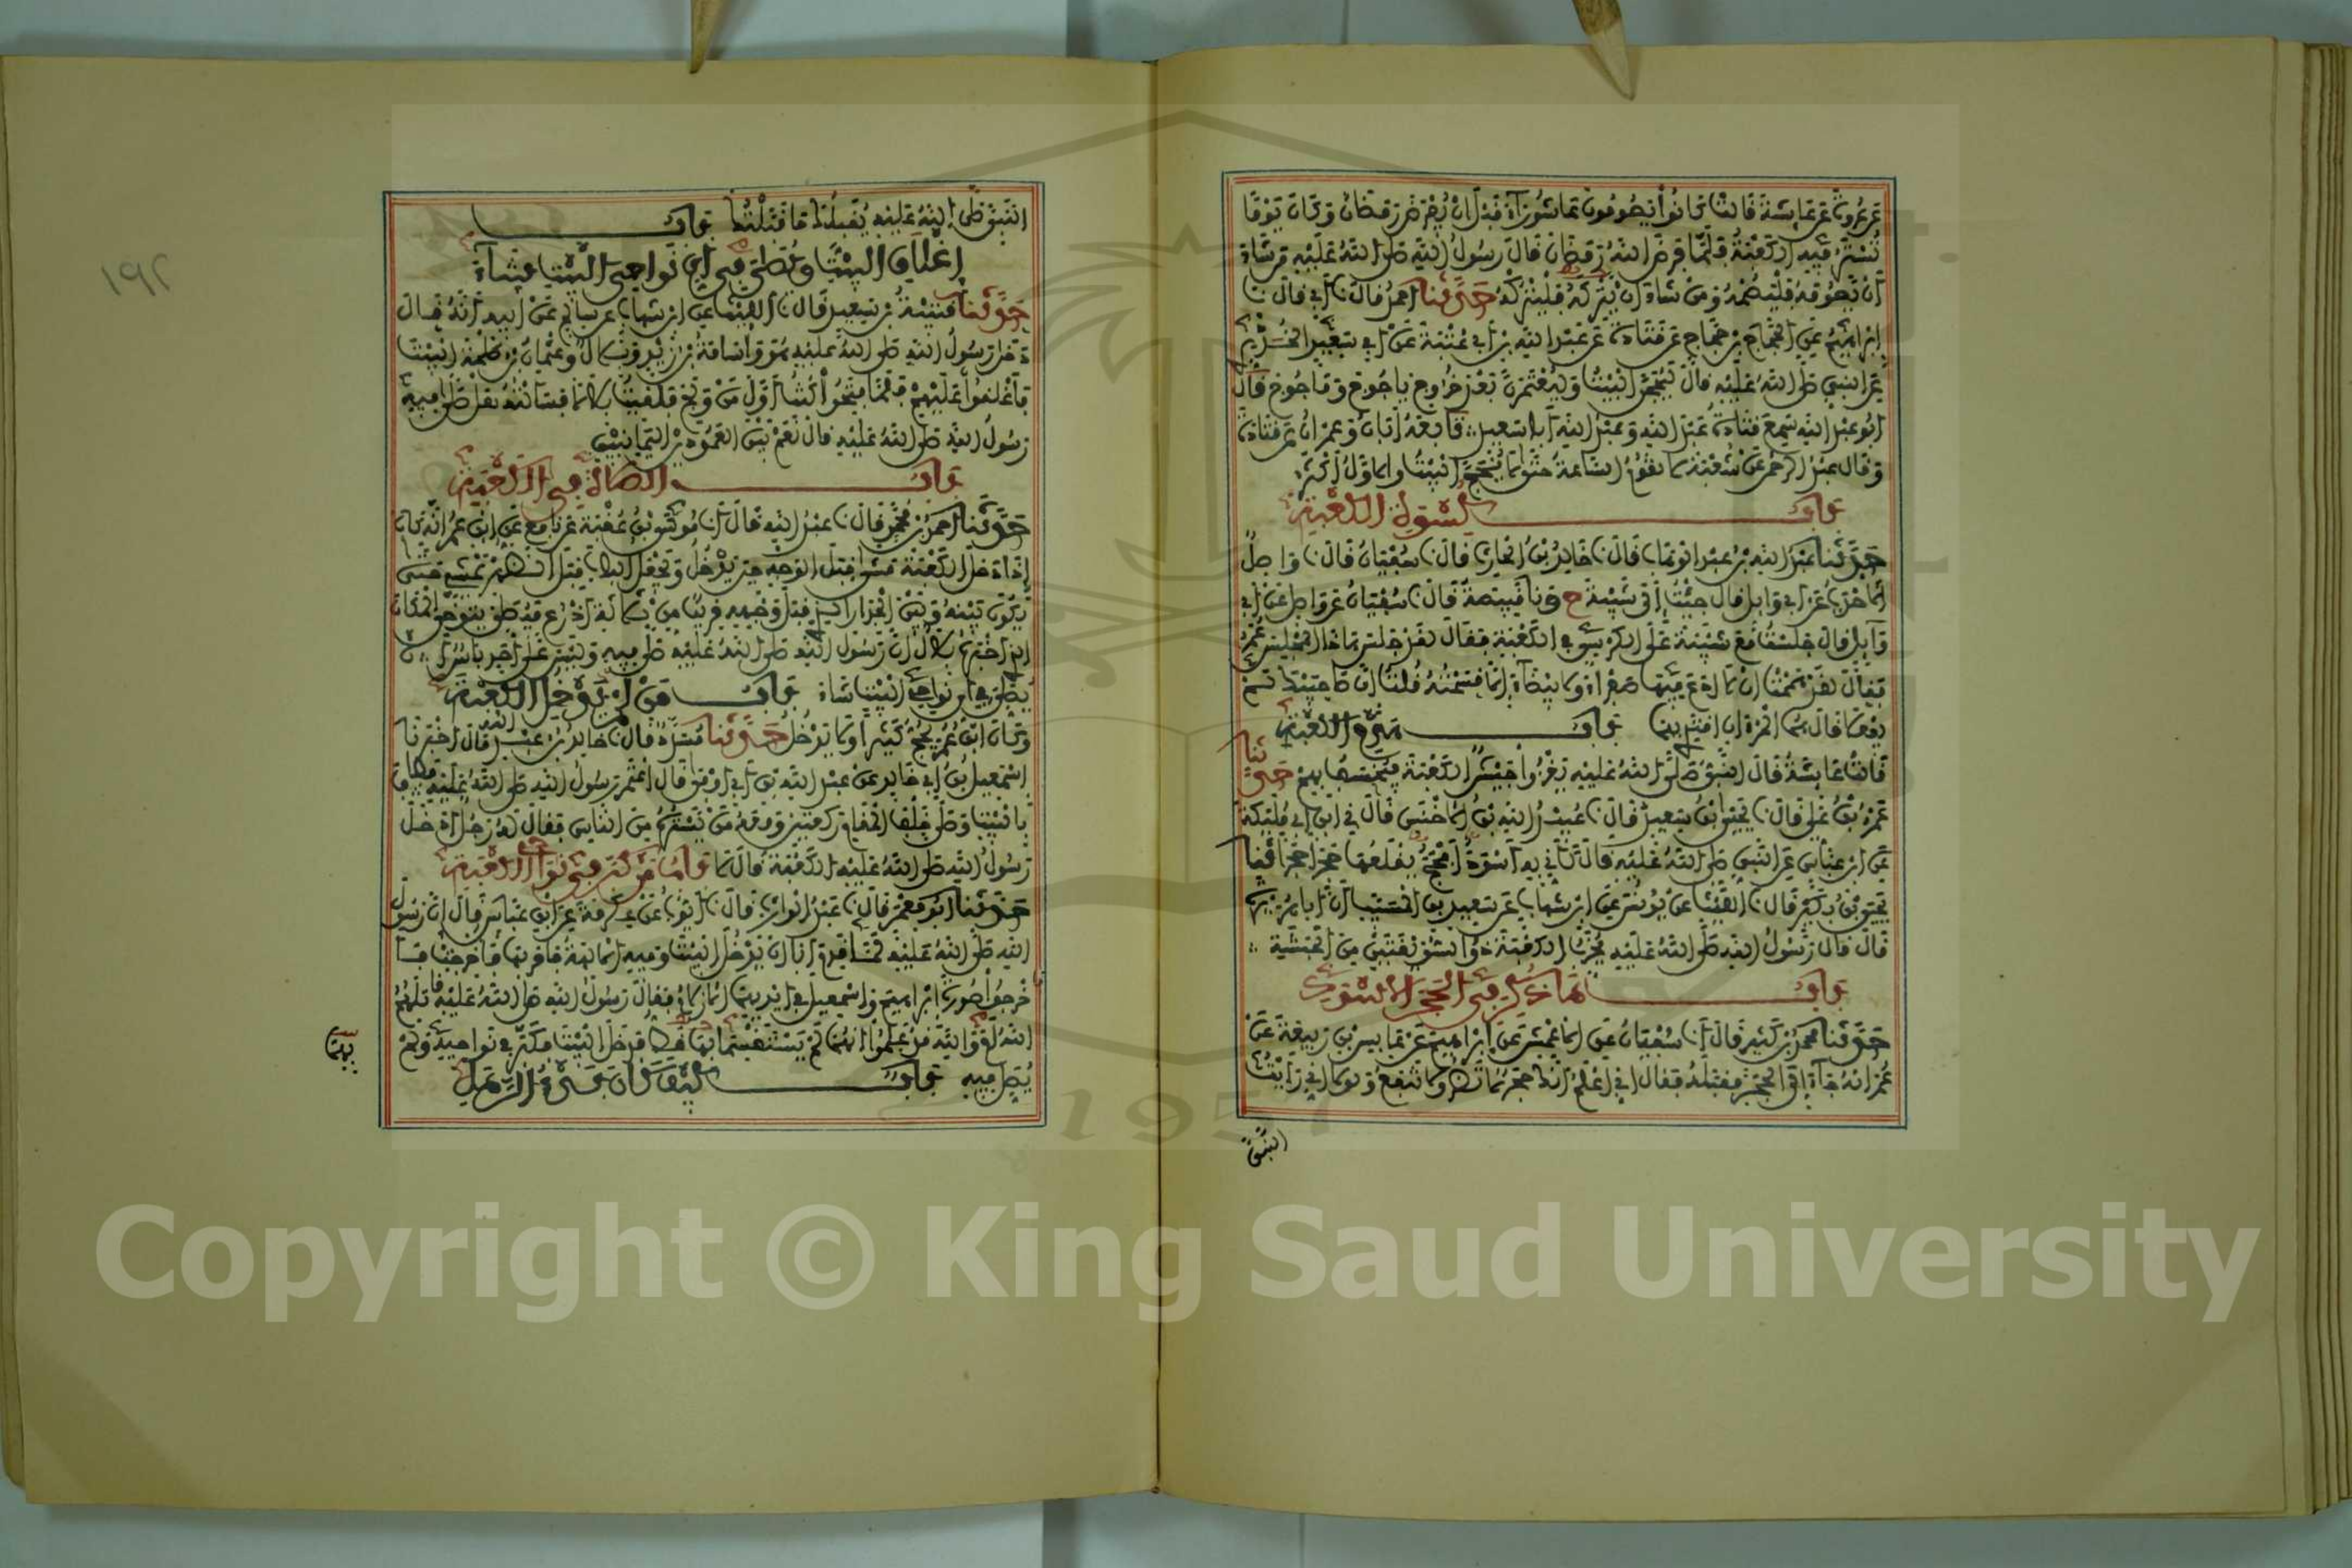 عن عروة عن عايشة قالت كانوا يصومون عاشوراء قبل ان يفرض رمضان وكان يوما
تستر فيه الكعبة فلما فرض الله رمضان قال رسول الله صلى الله عليه من شاء
ان يصومه فليصمه ومن شاء ان يتركه فليتركه حدثنا احمد قال نا ابي قال نا
ابراهيم عن الحجاج بن حجاج عن قتادة عن عبد الله بن ابي عتبة عن ابي سعيد الخدري
عن النبي صلى الله عليه قال ليحجن البيت وليعتمرن بعد خروج ياجوج وماجوج قال
ابو عبد الله سمع قتادة عبد الله وعبد الله ابا سعيد تابعه ابان وعمران عن قتادة
وقال عبد الرحمن عن شعبة لا تقوم الساعة حتى لا يحج البيت والاول اكثر
باب كسوة الكعبة
حدثنا عبد الله بن عبد الوهاب قال نا خالد بن الحارث قال نا سفيان قال نا واصل
الاحدب عن ابي وايل قال جئت الى شيبة ح ونا قبيصة قال نا سفيان عن واصل عن ابي
وايل قال جلست مع شيبة على الكرسي في الكعبة فقال لقد جلس هاذا المجلس عمر
فقال لقد هممت ان لا ادع فيها صفراء ولا بيضاء الا قسمته قلت ان صاحبيك لم
يفعلا قال هما المرءان اقتدي بهما باب هدم الكعبة
قالت عايشة قال النبي صلى الله عليه يغزوا جيش الكعبة فيخسف بهم حدثنا
عمرو بن علي قال نا يحيى بن سعيد قال نا عبيد الله بن الاخنس قال ني ابن ابي مليكة
عن ابن عباس عن النبي صلى الله عليه قال كاني به اسود افحج يقلعها حجرا حجرا نا
يحيى بن بكير قال نا الليث عن يونس عن ابن شهاب عن سعيد بن المسيب ان ابا هريرة
قال قال رسول الله صلى الله عليه يخرب الكعبة ذوا السويقتين من الحبشة
باب ما ذكر في الحجر الاسود
حدثنا محمد بن كثير قال انا سفيان عن الاعمش عن ابراهيم عن عابس بن ربيعة عن
عمر انه جاء الى الحجر فقبله فقال اني اعلم انك حجر لا تضر ولا تنفع ولولا اني رايت
النبي
النبي صلى الله عليه يقبلك ما قبلتك باب
اغلاق البيت ويصلي في اي نواحي البيت شاء
حدثنا قتيبة بن سعيد قال نا الليث عن ابن شهاب عن سالم عن ابيه انه قال
دخل رسول الله صلى الله عليه هو واسامة بن زيد وبلال وعثمان بن طلحة البيت
فاغلقوا عليهم فلما فتحوا كنت اول من ولج فلقيت بلالا فسالته هل صلى فيه
رسول الله صلى الله عليه قال نعم بين العمودين اليمانيين
باب الصلاة في الكعبة
حدثنا احمد بن محمد قال نا عبد الله قال انا موسى بن عقبة عن نافع عن ابن عمر انه كان
اذا دخل الكعبة مشى قبل الوجه حين يدخل ويجعل الباب قبل الظهر يمشي حتى
يكون بينه وبين الجدار الذي قبل وجهه قريبا من ثلاثة اذرع فيصلي يتوخى المكان
الذي اخبره بلال ان رسول الله صلى الله عليه صلى فيه وليس على احد باس ان
يصلي في اي نواحي البيت شاء باب من لم يدخل الكعبة
وكان ابن عمر يحج كثيرا ولا يدخل حدثنا مسدد قال نا خالد بن عبد الله قال اخبرنا
اسمعيل بن ابي خالد عن عبد الله بن ابي اوفى قال اعتمر رسول الله صلى الله عليه فطاف
بالبيت وصلى خلف المقام ركعتين ومعه من يستره من الناس فقال له رجل ادخل
رسول الله صلى الله عليه الكعبة قال لا باب من كبر في نواحي الكعبة
حدثنا ابو معمر قال نا عبد الوارث قال نا ايوب عن عكرمة عن ابن عباس قال ان رسول
الله صلى الله عليه لما قدم ابا ان يدخل البيت وفيه الالهة فامر بها فاخرجت فا
خرجوا صورة ابراهيم واسمعيل في ايديهما الازلام فقال رسول الله صلى الله عليه قاتلهم
الله اما والله قد علموا انهما لم يستقسما بها قط فدخل البيت فكبر في نواحيه ولم
يصل فيه باب كيف كان بدء الرمل
١٩٢
Copyright © King Saud University
1957